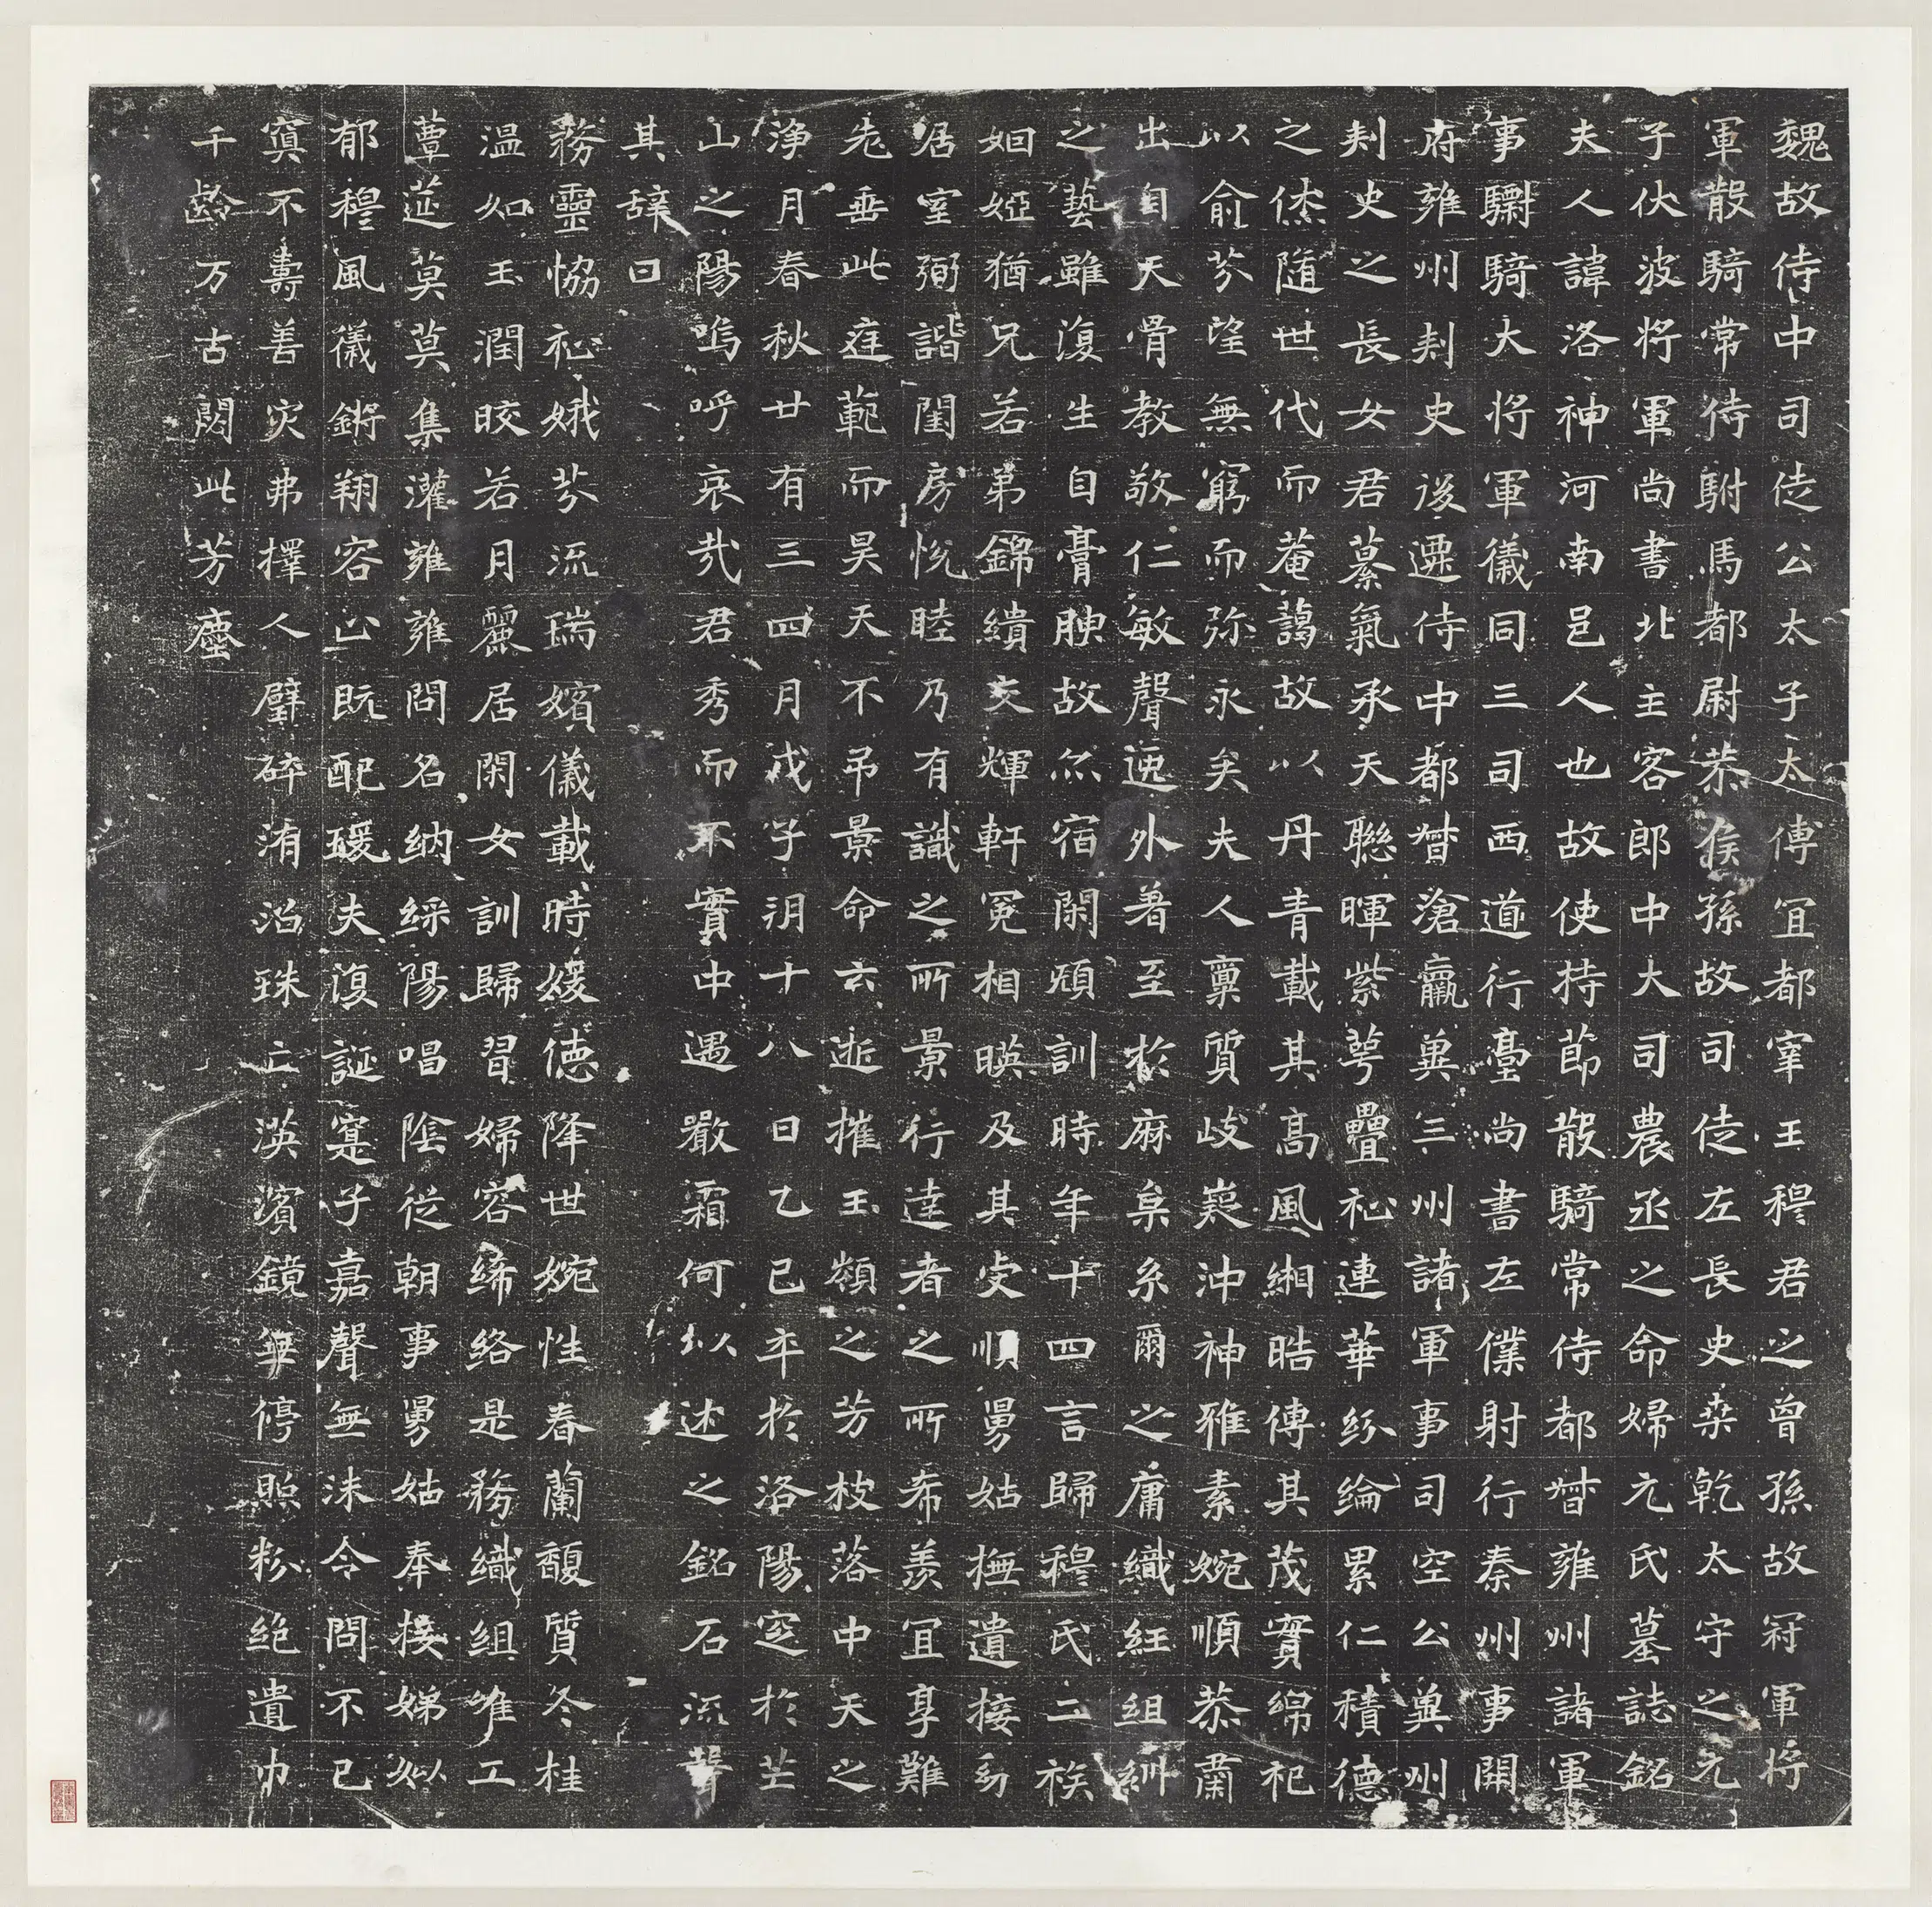 魏故侍中司徒公太子太傅宜都宰王穆君之曾孫故冠軍將
軍散騎常侍駙馬都尉恭侯孫故司徒左長史桑乾太守之元
子伏波將軍尚書北主客郎中大司農丞之命婦元氏墓誌銘
夫人諱洛神河南邑人也故使持節散騎常侍都督雍州諸軍
事驃騎大將軍儀同三司西道行臺尚書左僕射行秦州事開
府雍州刺史後遷侍中都督滄瀛冀三州諸軍事司空公冀州
刺史之長女君綦氣承天聯暉紫萼疊祉連華紛綸累仁積德
之俠隨世代而菴藹故以丹青載其高風緗皓傳其茂實綿祀
以俞芬望無窮而弥永矣夫人稟質岐嶷沖神雅素婉順恭肅
出自天骨教敬仁敏聲逸外著至於麻枲糸爾之庸織紝組紃
之藝雖復生自膏腴故亦宿閑頎訓時年十四言歸穆氏二族
姻婭猶兄若弟錦繢交輝軒冕相暎及其虔順舅姑撫遺接幼
居室弼諧閨房悅睦乃有識之所景行達者之所希羨宜享難
老垂此庭範而昊天不弔景命云逝摧玉穎之芳枝落中天之
淨月春秋廿有三四月戊子朔十八日乙巳卒於洛陽窆於芒
山之陽嗚呼哀哉君秀而不實中遇嚴霜何以述之銘石流聲
其辭曰
務靈恊祉娥芬流瑞嬪儀載時媛德降世婉性春蘭馥質冬桂
温如玉潤皎若月麗居閑女訓歸習婦容絺綌是務織組唯工
蕈莚莫莫集灌雍雍問名納綵陽唱陰從朝事舅姑奉接娣姒
郁穆風儀鏘翔容止既配瑗夫復誕寔子嘉聲無沬令問不已
寘不壽善灾弗擇人璧碎洧汭珠亡漢濱鏡無停照粉絕遺巾
千齡万古閟此芳塵